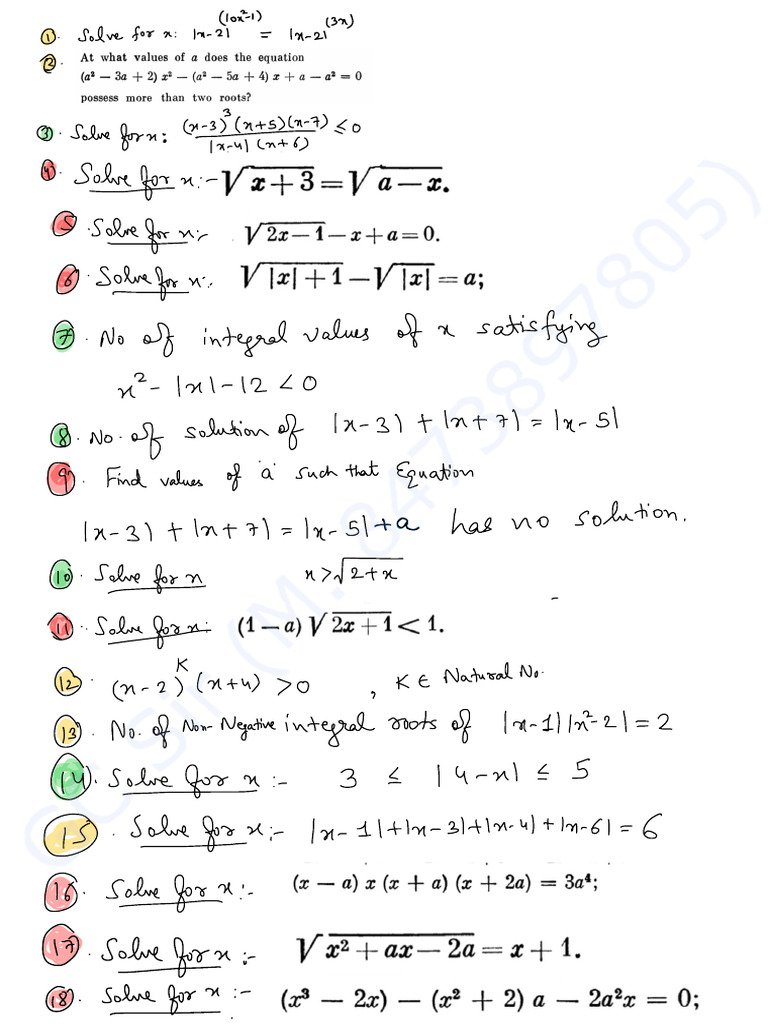 1. Solve for x: |x-2|^(10x²-1) = |x-2|^(3x)
2. At what values of a does the equation
(a² — 3a + 2) x² — (a² — 5a + 4) x + a — a² = 0
possess more than two roots?
3. Solve for x: (x-3)³(x+5)(x-7) / |x-4|(x+6) ≤ 0
4. Solve for x:- √x+3 = √a—x.
5. Solve for x:- √2x—1—x+a=0.
6. Solve for x:- √|x|+1—√|x|=a;
7. No of integral values of x satisfying
x²-|x|-12 <0
8. No. of solution of |x-3| + |x+7| = |x-5|
9. Find values of 'a' such that Equation
|x-3| + |x+7| = |x-5|+a has no solution.
10. Solve for x x>√2+x
11. Solve for x: (1—a)√2x+1<1.
12. (x-2)^K (x+4) >0 , K ∈ Natural No.
13. No. of Non-Negative integral roots of |x-1||x²-2|=2
14. Solve for x:- 3 ≤ |4-x| ≤ 5
15. Solve for x:- |x-1|+|x-3|+|x-4|+|x-6|=6
16. Solve for x:- (x — a) x (x + a) (x + 2a) = 3a⁴;
17. Solve for x:- √x²+ax—2a=x+1.
18. Solve for x:- (x³ — 2x) — (x² + 2) a — 2a²x = 0;
GC Sir (M. 8473897805)